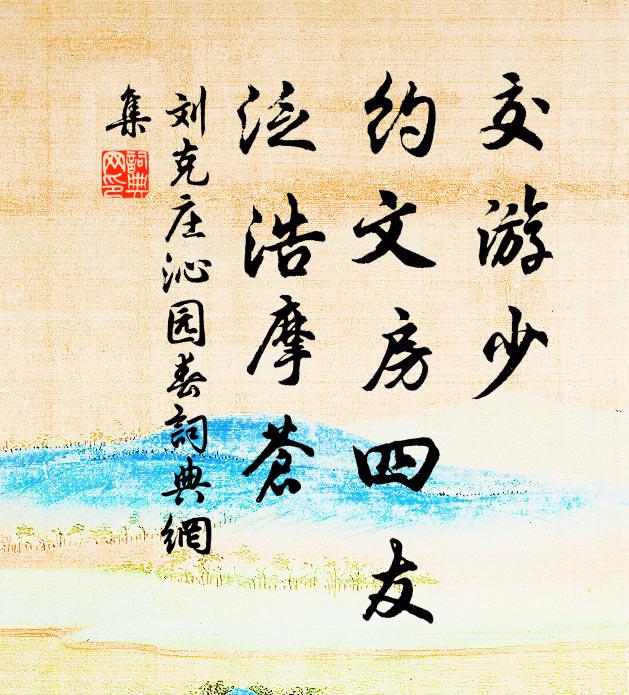 交游少
约文房四友
泛浩摩苍
刘克庄沁园春詞典網
集
詞典网印